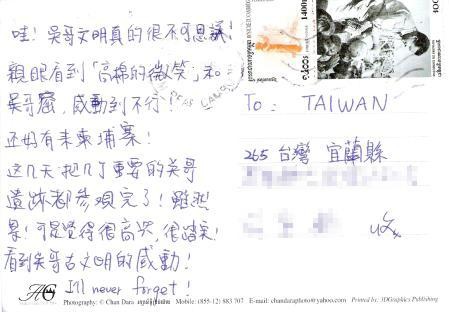 哇！吳哥文明真的很不可思議！
親眼看到「高棉的微笑」和
吳哥窟，感動到不行！
还好有来柬埔寨！
這几天把几个重要的吳哥
遺跡都參观完了！雖然
累！可是覺得很高兴，很踏實！
看到吳哥古文明的感動！
I'll never forget!
To: TAIWAN
265 台灣 宜蘭縣
收
Photography: © Chan Dara
Mobile: (855-12) 883 707
E-mail: chandaraphoto@yahoo.com
Printed by: 3DGraphics Publishing